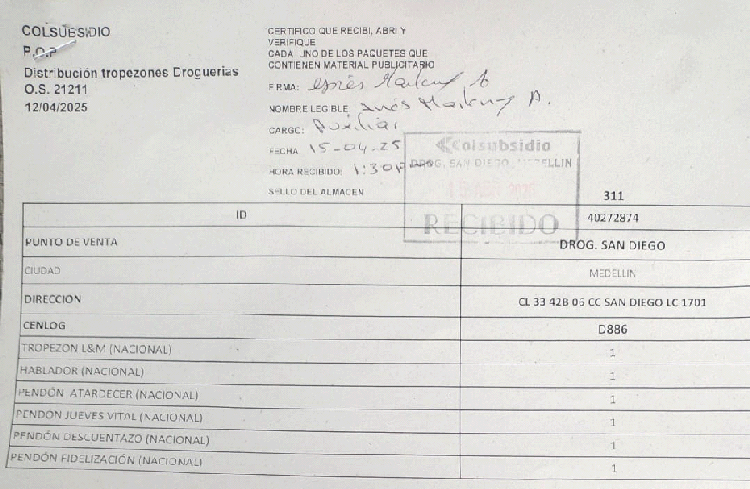 COLSUBSIDIO
P.O.P
Distribución tropezones Droguerias
O.S. 21211
12/04/2025
CERTIFICO QUE RECIBI, ABRI Y
VERIFIQUE
CADA UNO DE LOS PAQUETES QUE
CONTIENEN MATERIAL PUBLICITARIO
FIRMA:
NOMBRE LEGIBLE
CARGO: Auxiliar
FECHA 15-04-25
HORA RECIBIDO: 1:30P
SELLO DEL ALMACEN
Colsubsidio
DROG. SAN DIEGO, MEDELLIN
RECIBIDO
311
ID 40272874
PUNTO DE VENTA DROG. SAN DIEGO
CIUDAD MEDELLIN
DIRECCION CL 33 42B 06 CC SAN DIEGO LC 1701
CENLOG D886
TROPEZON L&M (NACIONAL) 1
HABLADOR (NACIONAL) 1
PENDÓN ATARDECER (NACIONAL) 1
PENDON JUEVES VITAL (NACIONAL) 1
PENDÓN DESCUENTAZO (NACIONAL) 1
PENDÓN FIDELIZACIÓN (NACIONAL) 1